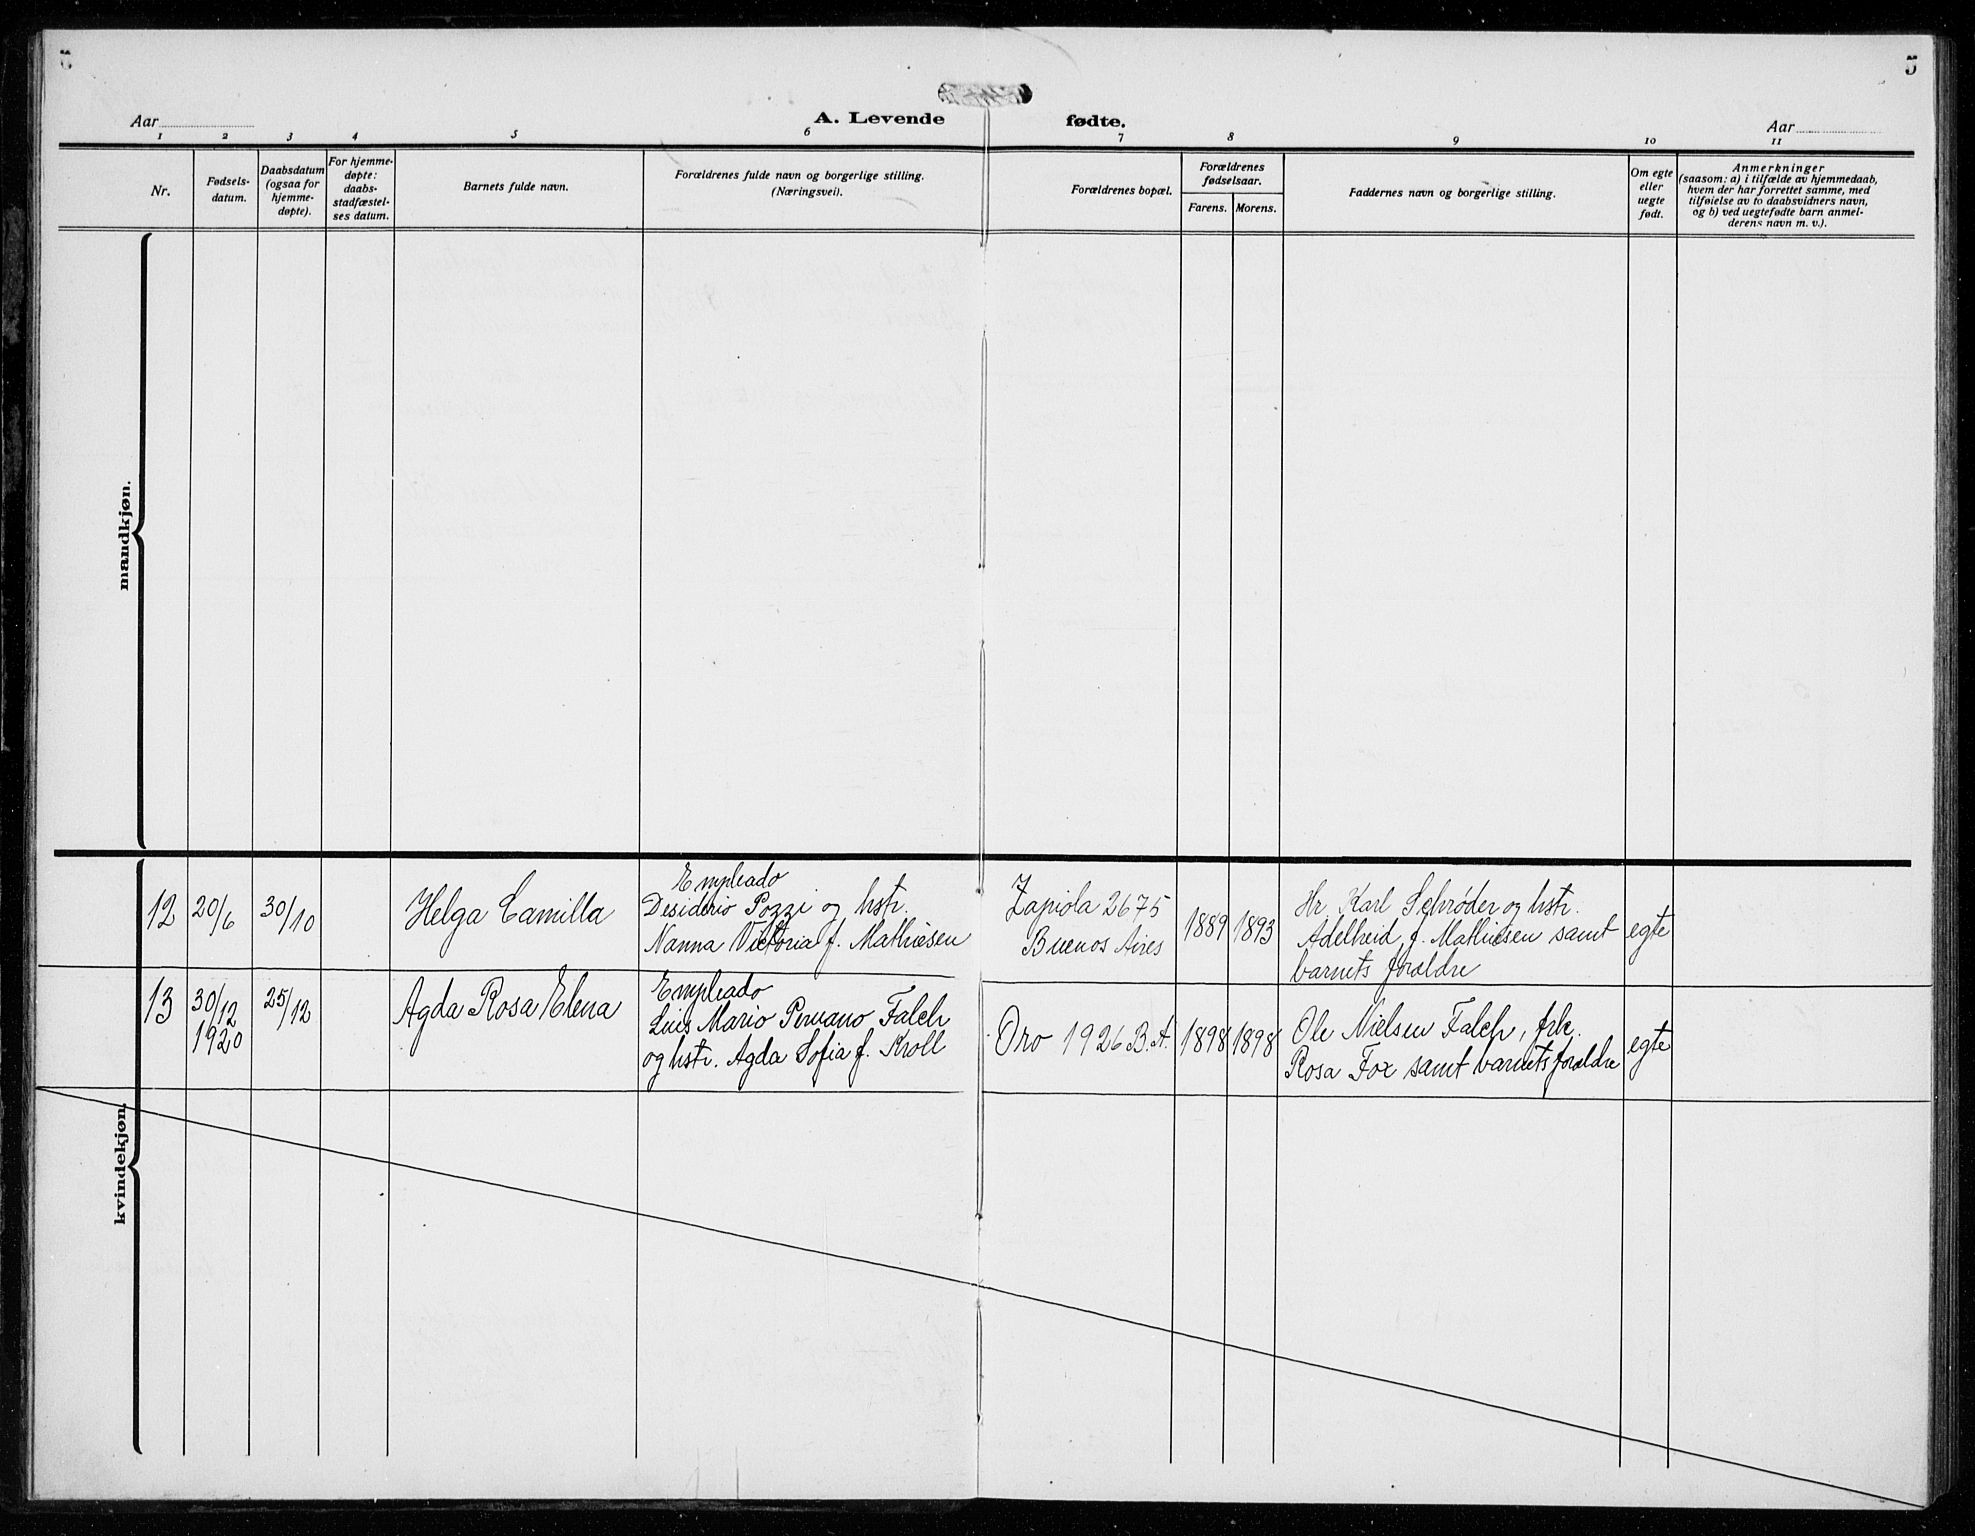 5
A. Levende fødte.
Aar
Aar
1 2 3 4 5 6 7 8 9 10 11
Nr.
Fødsels-
datum.
Daabsdatum
(ogsaa for
hjemme-
døpte).
For hjemme-
døpte:
daabs-
stadfæstel-
ses datum.
Barnets fulde navn.
Forældrenes fulde navn og borgerlige stilling.
(Næringsvei).
Forældrenes bopæl.
Forældrenes
fødselsaar.
Farens. Morens.
Faddernes navn og borgerlige stilling.
Om egte
eller
uegte
født.
Anmerkninger
(saasom: a) i tilfælde av hjemmedaab,
hvem der har forrettet samme, med
tilføielse av to daabsvidners navn,
og b) ved uegtefødte barn anmel-
derens navn m. v.).
mandkjøn.
kvindekjøn.
12
20/6
30/10
Helga Camilla
Empleado
Desiderio Pozzi og hstr.
Nanna Victoria f. Mathiesen
Zapiola 2675
Buenos Aires
1889
1893
Hr. Karl Schrøder og hstr.
Adelheid f. Mathiesen samt
barnets forældre
egte
13
30/12
1920
25/12
Agda Rosa Elena
Empleado
Luis Mario Peruano Falch
og hstr. Agda Sofia f. Kroll
Oro 1926 B. A.
1898
1898
Ole Nielsen Falch, frk.
Rosa Fox samt barnets forældre
egte